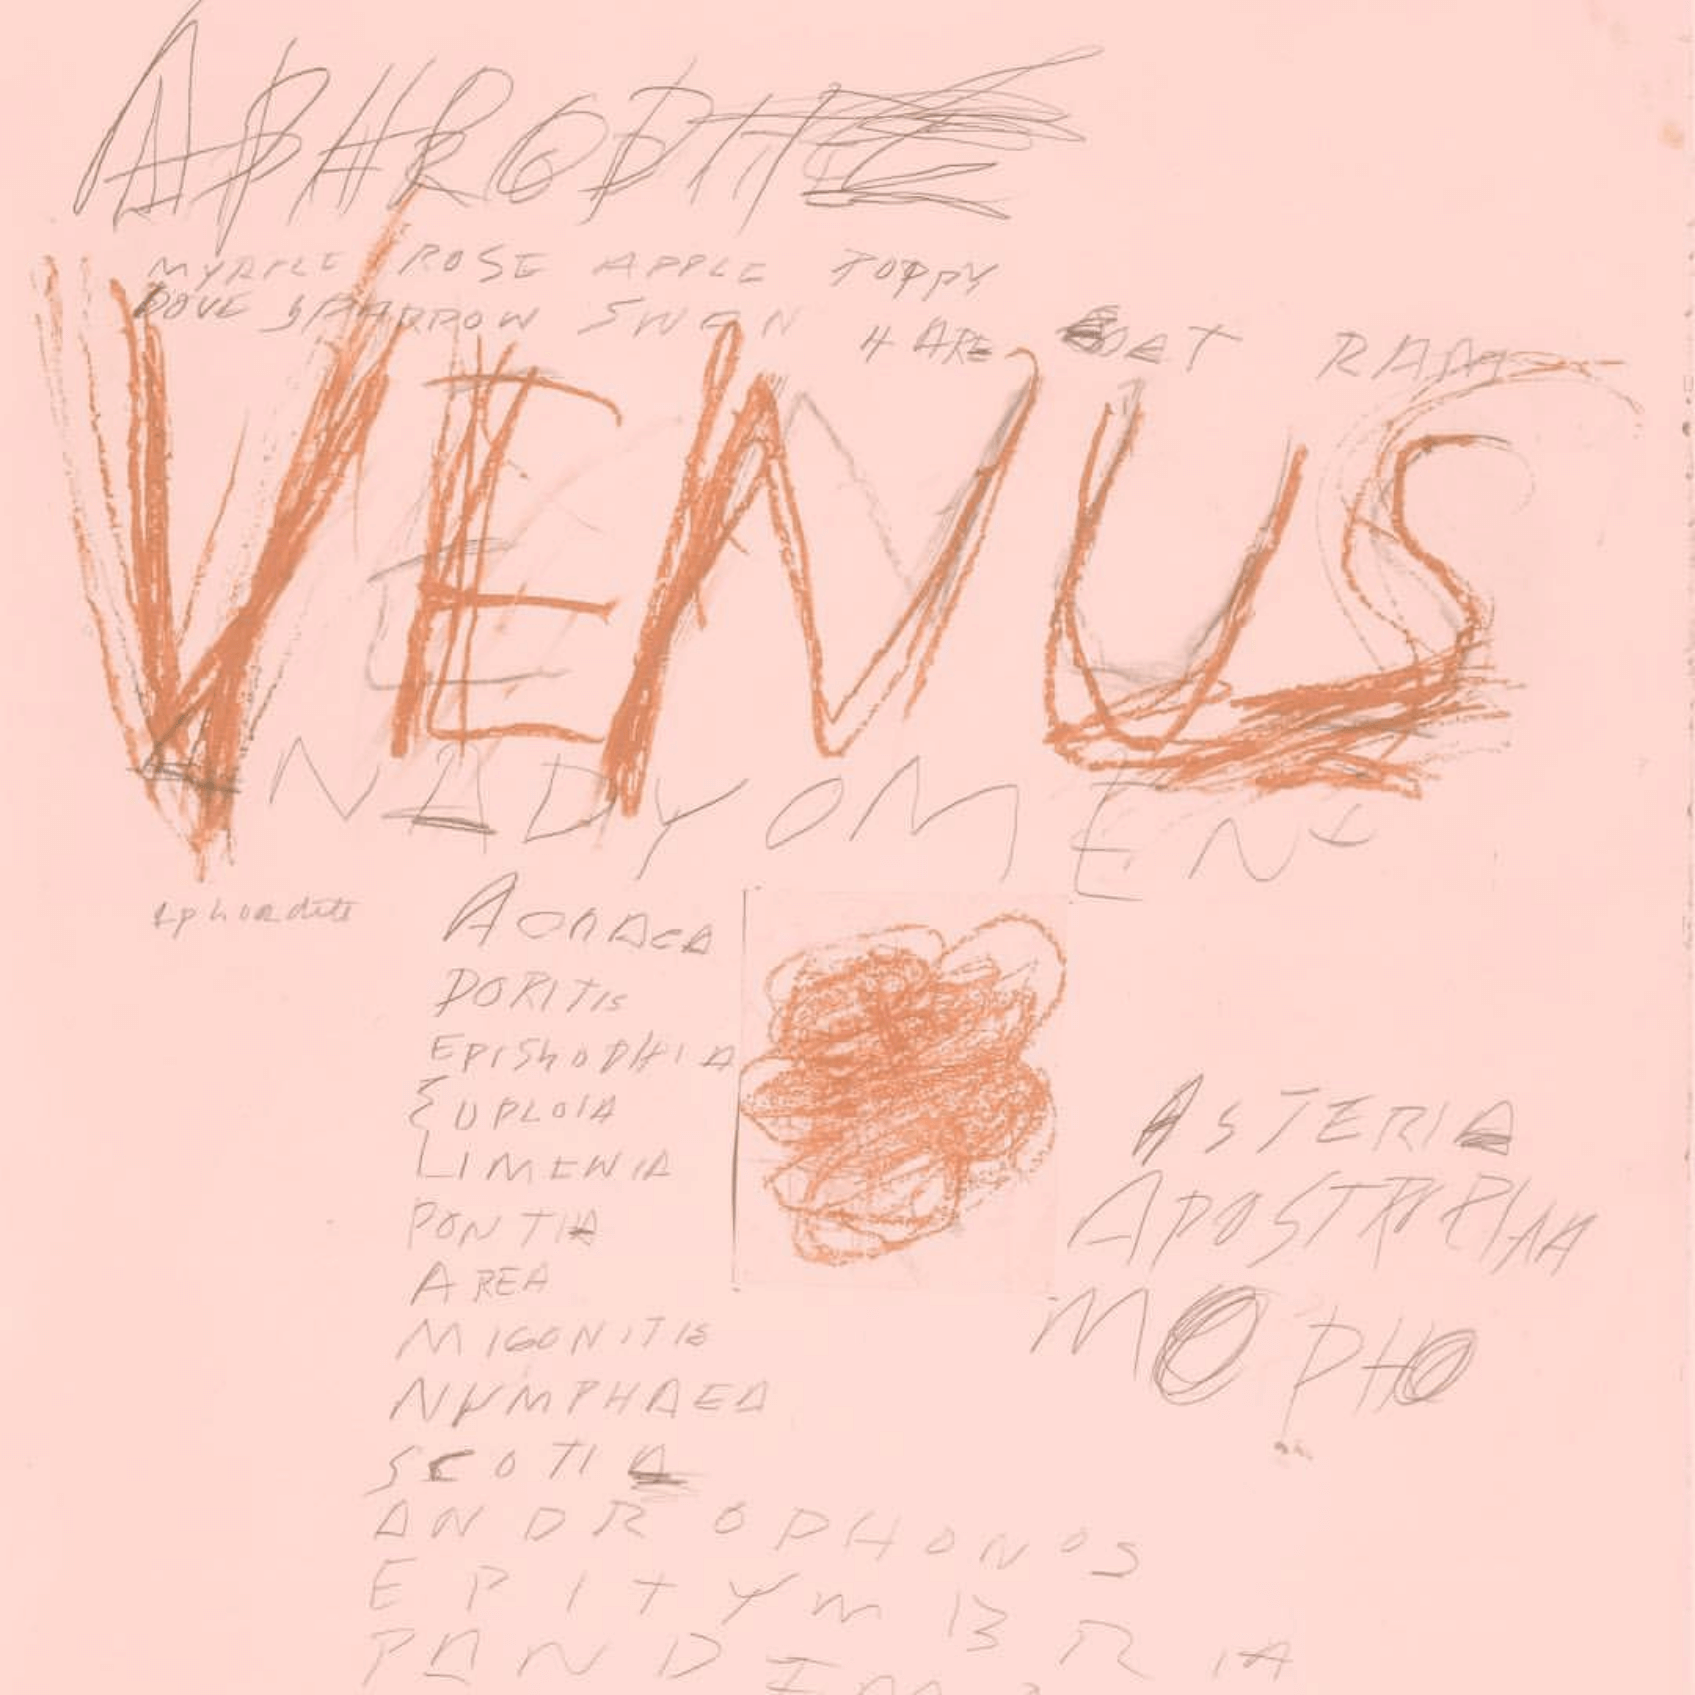 APHRODITE
MYRTLE ROSE APPLE POPPY
DOVE SPARROW SWAN HARE GOAT RAM
VENUS
ANADYOMENE
Aphrodite
DORITIS
EPISKOPHIA
EUPLOIA
LIMENIA
PONTIA
AREA
MIGONITIS
NYMPHAEA
SCOTIA
ANDROPHONOS
EPITYMBRIA
ASTERIA
MOPHO